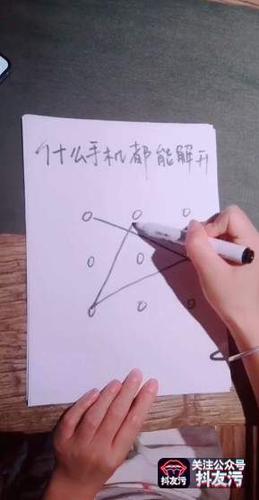 什么手机都能解开
关注公众号
抖友污
抖友污